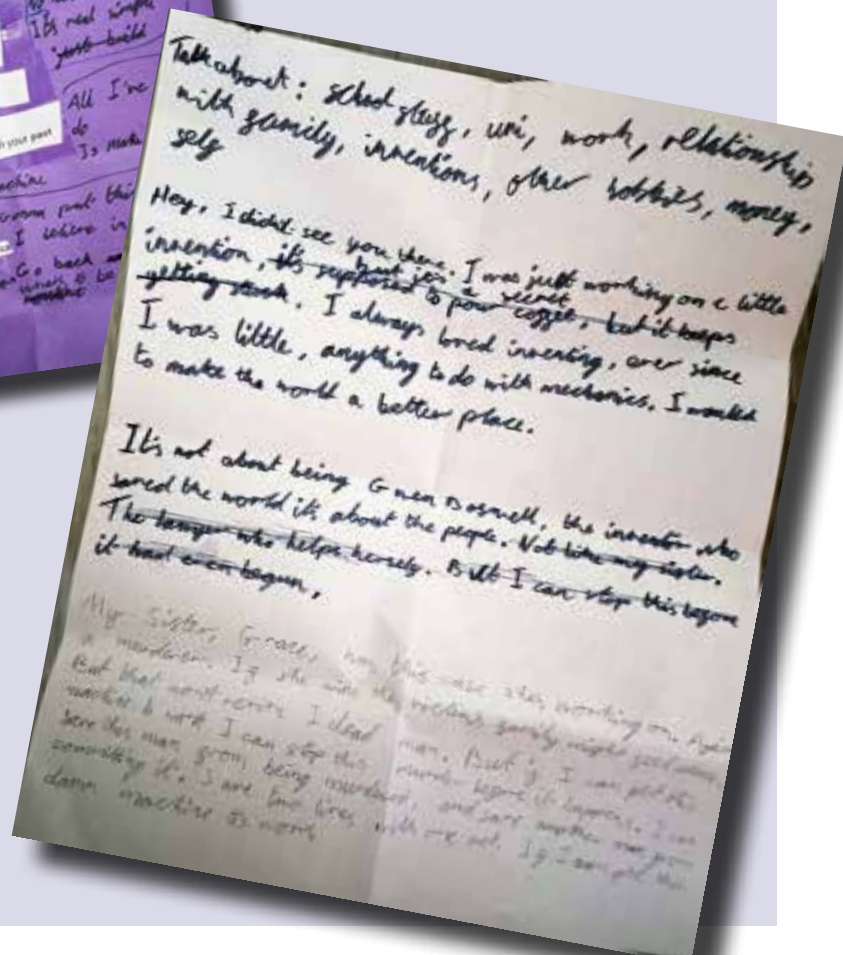 Its real simple
just build
All I've
do
Is make
h your past
achine
I where in
Go back
Talk about: school stuff, uni, work, relationship
with family, inventions, other hobbies, money,
self
Hey, I didnt see you there. I was just working on a little
but its a secret
invention, its supposed to pour coffee, but it keeps
getting stuck. I always loved inventing, ever since
I was little, anything to do with mechanics. I wanted
to make the world a better place.
It's not about being Gwen Boswell, the inventor who
saved the world its about the people. Not like my sister.
The lawyer who helps herself. But I can stop this before
it had even begun,
My Sister, Grace, has this case shes working on.
a murderer. If she wins the victims family might
But that wont revive 1 dead man. But if I can get this
machine to work I can stop this murder before it happens. I can
save this man from being murdered, and save another man from
committing it. Save two lives with one act. If I can get this
damn machine to work